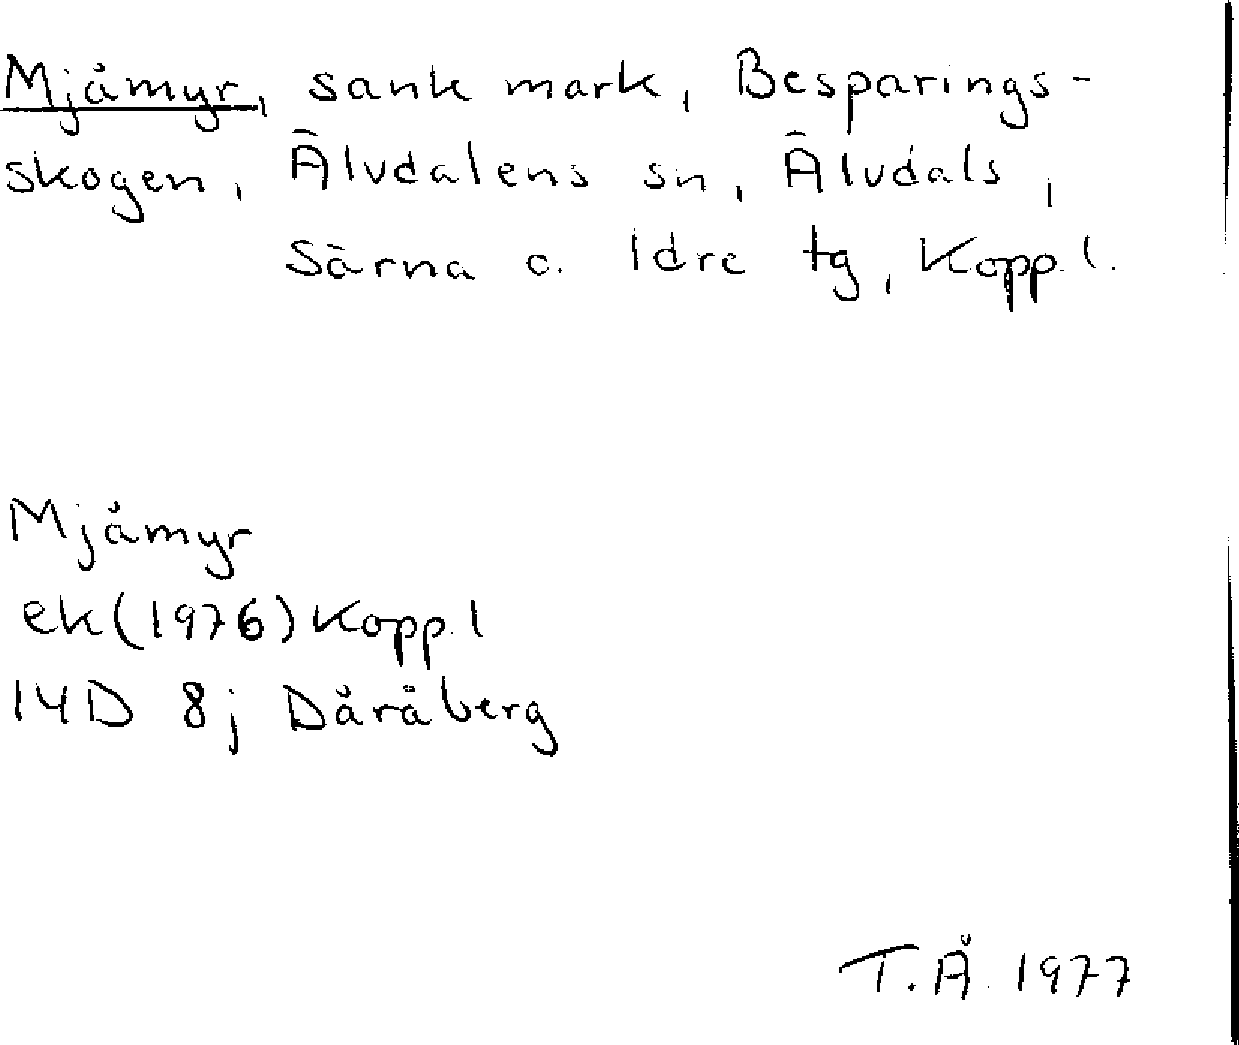 Mjåmyr, sank mark, Besparings-
skogen, Älvdalens sn, Älvdals,
Särna o. Idre tg, Kopp.l.
Mjåmyr
ek(1976)Kopp.l
14D 8j Dåråberg
T.Å. 1977